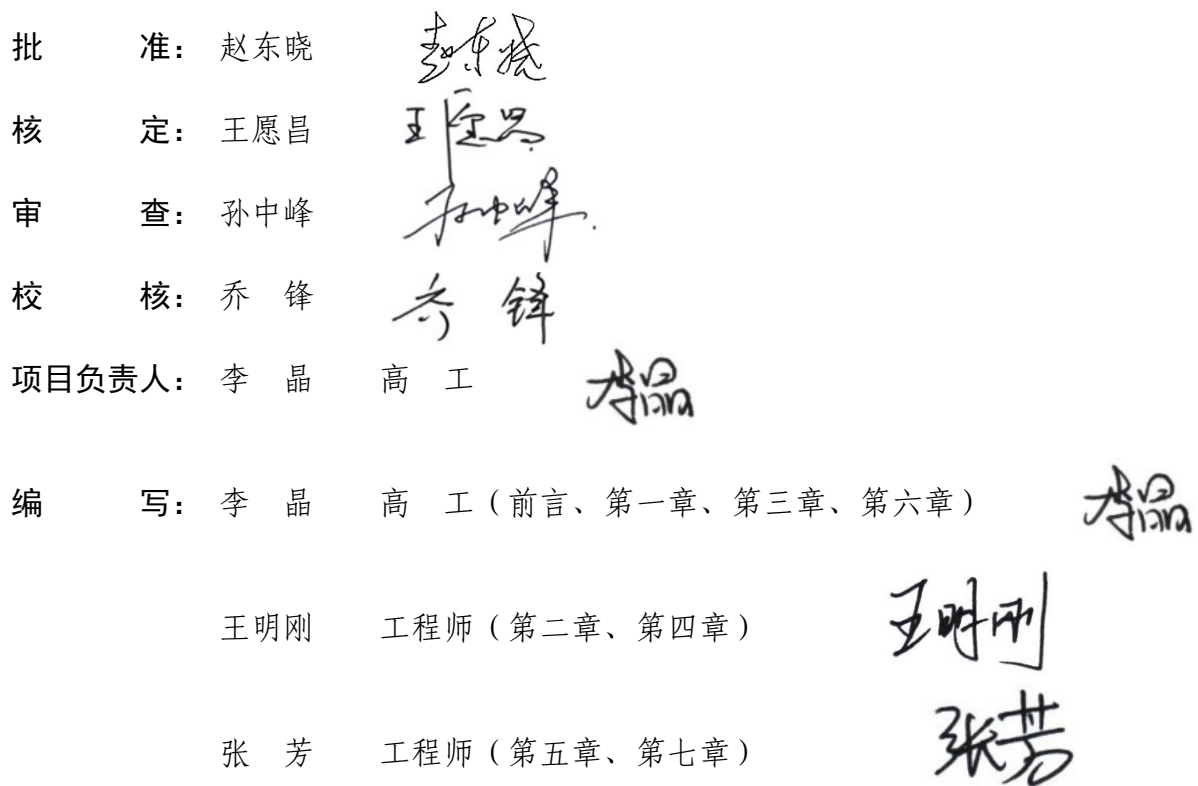 批 准：赵东晓 赵东晓
核 定：王愿昌 王愿昌
审 查：孙中峰 孙中峰
校 核：乔 锋 乔 锋
项目负责人：李 晶 高 工 李晶
编 写：李 晶 高 工（前言、第一章、第三章、第六章） 李晶
王明刚 工程师（第二章、第四章） 王明刚
张 芳 工程师（第五章、第七章） 张芳